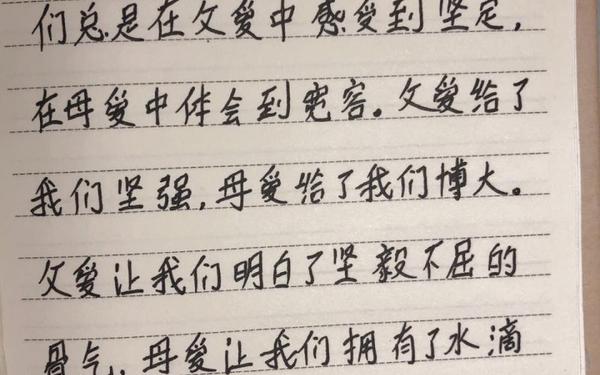 们总是在父爱中感受到坚定，
在母爱中体会到宽容。父爱给了
我们坚强，母爱给了我们博大。
父爱让我们明白了坚毅不屈的
骨气，母爱让我们拥有了水滴